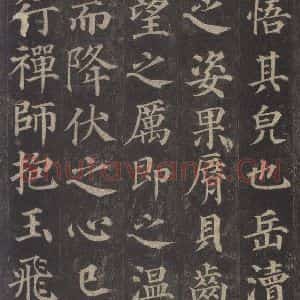 悟其皃也岳瀆
之姿果脣貝齒
望之厲即之温
而降伏之心巳
行禪師抱玉飛
ShufaWang.CN